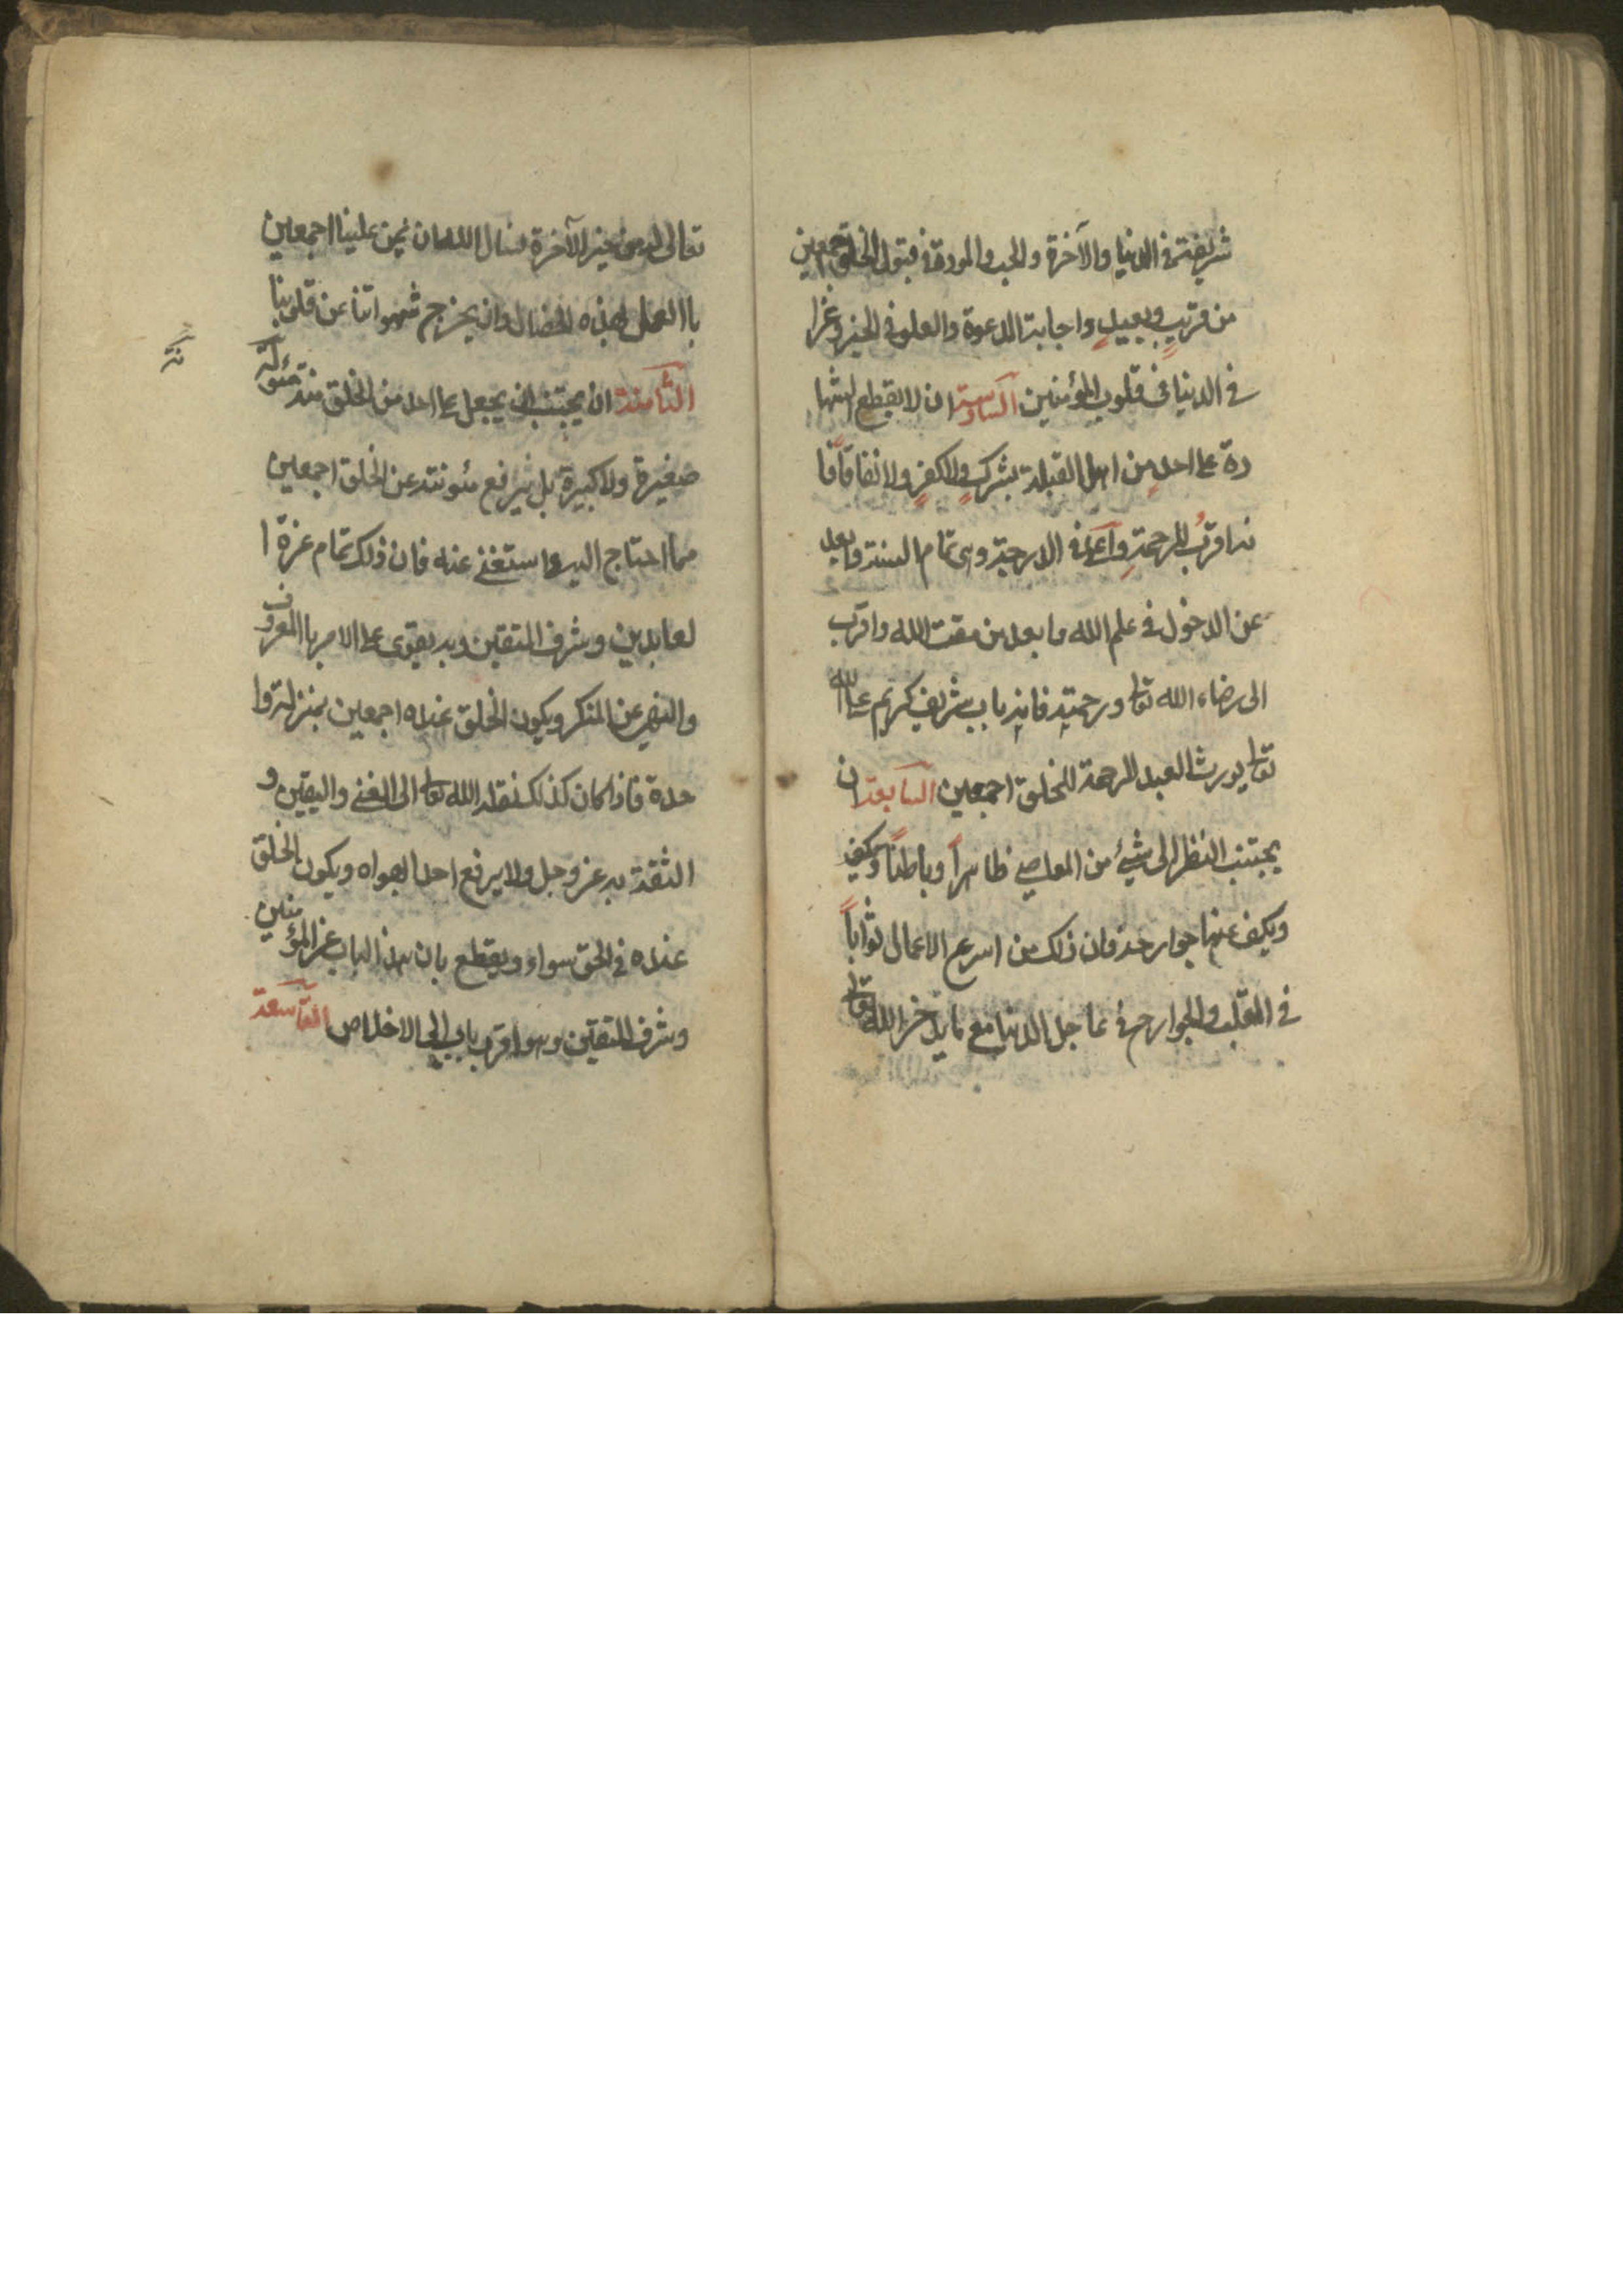 شريفة في الدنيا والآخرة والحب والمودة في قبول الخلق اجمعين
من قريبٍ وبعيدٍ واجابة الدعوة والعلو في الخير وعزا
في الدنيا في قلوب المؤمنين السادسة ان لا يقطع الشها
دة على احدٍ من اهل القبلة بشركٍ ولا كفرٍ ولا نفاقٍ فا
نه اقربُ للرحمةِ واعلى في الدرجة وهي تمام السنة وابعد
عن الدخول في علم الله وابعد من مقت الله واقرب
الى رضاء الله تعا ورحمته فانه باب شريف كريم على الله
تعا يورث العبد الرحمة للخلق اجمعين السابعة ان
يجتنب النظر الى شيئ من المعاصي ظاهراً وباطناً ويكف
ويكف عنها جوارحه فان ذلك من اسرع الاعمال ثواباً
في القلب والجوارح في عاجل الدنيا مع ما يدخر الله تعا
تعالى له من خير الآخرة نسال الله ان يمن علينا اجمعين
باالعمل لهذه الخصال وان يخرج شهواتنا عن قلوبنا
الثامنة ان يجتنب ان يجعل على احد من الخلق منه مئونة
نة
صغيرة ولا كبيرة بل يرفع مئونته عن الخلق اجمعين
مما احتاج اليه واستغنى عنه فان ذلك تمام عزة ا
لعابدين وشرف المتقين وبه يقوى على الامر باالمعروف
والنهي عن المنكر ويكون الخلق عنده اجمعين بمنزلة وا
حدة فاذا كان كذلك نقله الله تعا الى الغنى واليقين و
الثقة به عز وجل ولا يرفع احدا بهواه ويكون الخلق
عنده في الحق سواء ويقطع بان هذا الباب عز المؤمنين
وشرف المتقين وهو اقرب باب الى الاخلاص التاسعة